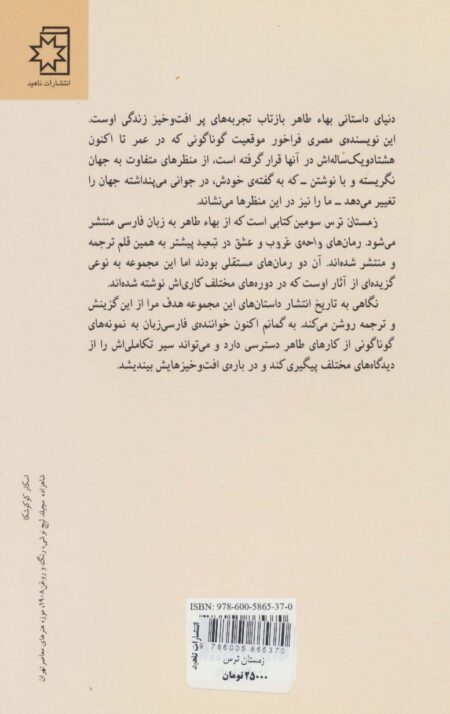 انتشارات ناهید
دنیای داستانی بهاء طاهر بازتاب تجربه‌های پر افت‌وخیز زندگی اوست.
این نویسنده‌ی مصری فراخور موقعیت گوناگونی که در عمر تا اکنون
هشتادویک‌ساله‌اش در آنها قرار گرفته است، از منظرهای متفاوت به جهان
نگریسته و با نوشتن ــ که به گفته‌ی خودش، در جوانی می‌پنداشته جهان را
تغییر می‌دهد ــ ما را نیز در این منظرها می‌نشاند.
زمستان ترس سومین کتابی است که از بهاء طاهر به زبان فارسی منتشر
می‌شود. رمان‌های واحه‌ی غروب و عشق در تبعید پیشتر به همین قلم ترجمه
و منتشر شده‌اند. آن دو رمان‌های مستقلی بودند اما این مجموعه به نوعی
گزیده‌ای از آثار اوست که در دوره‌های مختلف کاری‌اش نوشته شده‌اند.
نگاهی به تاریخ انتشار داستان‌های این مجموعه هدف مرا از این گزینش
و ترجمه روشن می‌کند. به گمانم اکنون خواننده‌ی فارسی‌زبان به نمونه‌های
گوناگونی از کارهای طاهر دسترسی دارد و می‌تواند سیر تکاملی‌اش را از
دیدگاه‌های مختلف پیگیری کند و در باره‌ی افت‌وخیزهایش بیندیشد.
اسکار کوکوشکا
شاهزاده مچیلد لیچ نوشی، رنگ و روغن، ۱۹۰۸، موزه هنرهای معاصر تهران
ISBN: 978-600-5865-37-0
انتشارات ناهید
9 786005 865370
زمستان ترس
۲۵۰۰۰ تومان